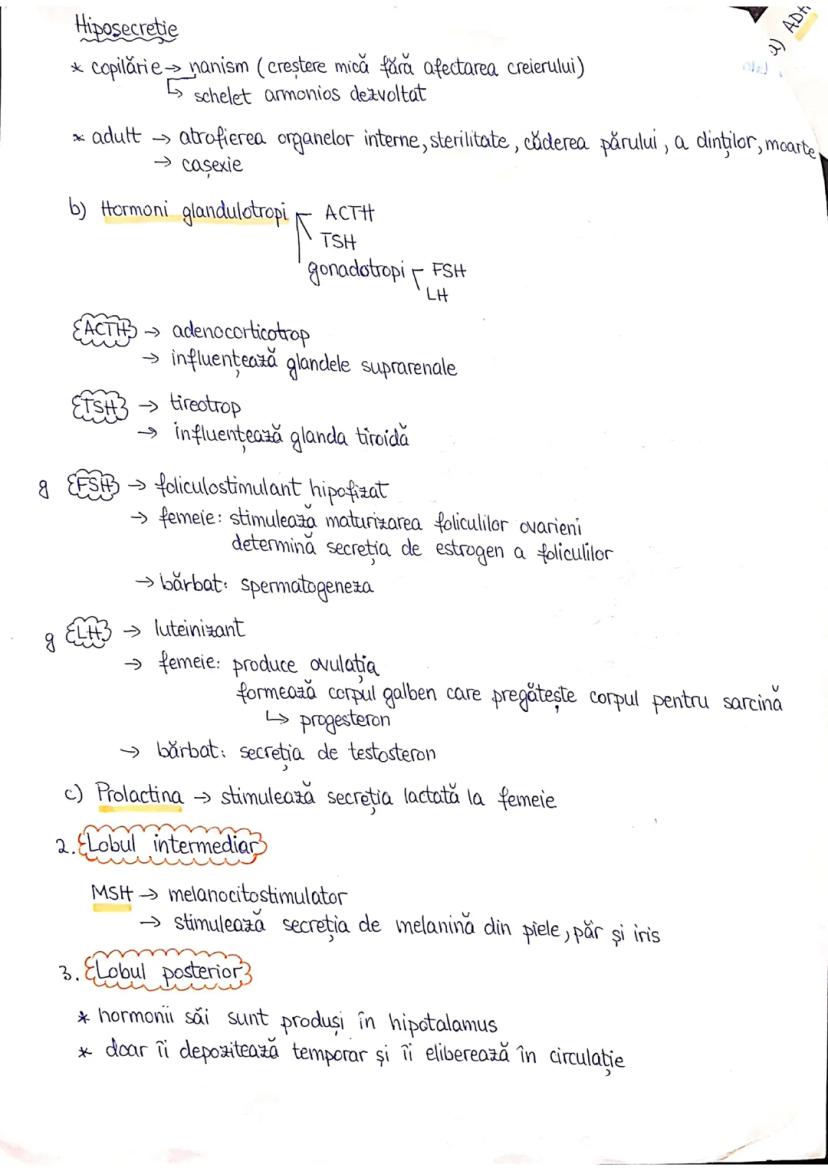 a) ADH
Hiposecreție
* copilărie → nanism (creștere mică fără afectarea creierului)
↳ schelet armonios dezvoltat
* adult → atrofierea organelor interne, sterilitate, căderea părului, a dinților, moarte
→ cașexie
b) Hormoni glandulotropi ACTH
TSH
gonadotropi FSH
LH
ACTH → adenocorticotrop
→ influențează glandele suprarenale
TSH → tireotrop
→ influențează glanda tiroidă
g FSH → foliculostimulant hipofizat
→ femeie: stimulează maturizarea foliculilor ovarieni
determină secreția de estrogen a foliculilor
→ bărbat: spermatogeneza
g LH → luteinizant
→ femeie: produce ovulația
formează corpul galben care pregătește corpul pentru sarcină
↳ progesteron
→ bărbat: secreția de testosteron
c) Prolactina → stimulează secreția lactată la femeie
2. Lobul intermediar
MSH → melanocitostimulator
→ stimulează secreția de melanină din piele, păr și iris
3. Lobul posterior
* hormonii săi sunt produși în hipotalamus
* doar îi depozitează temporar și îi eliberează în circulație